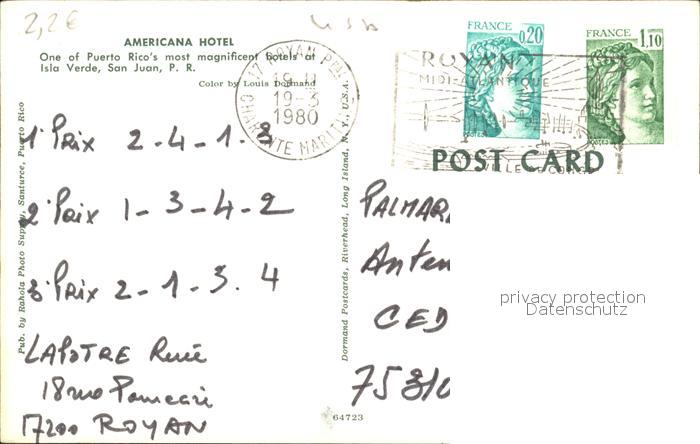 2,2€
AMERICANA HOTEL
One of Puerto Rico's most magnificent hotels at
Isla Verde, San Juan, P. R.
Color by Louis Dormand
17 ROYAN PPAL
19-3
1980
CHARENTE MARITIME
FRANCE
0,20
FRANCE
1,10
ROYAN
MIDI-ATLANTIQUE
POST CARD
Pub. by Rahola Photo Supply, Santurce, Puerto Rico
1° Prix 2-4-1-3
2° Prix 1-3-4-2
3° Prix 2-1-3.4
LAPOTRE René
18 rue
17200 ROYAN
Dormand Postcards, Riverhead, Long Island, N. Y., U.S.A.
64723
PALMAR
Anten
CED
75310
privacy protection
Datenschutz